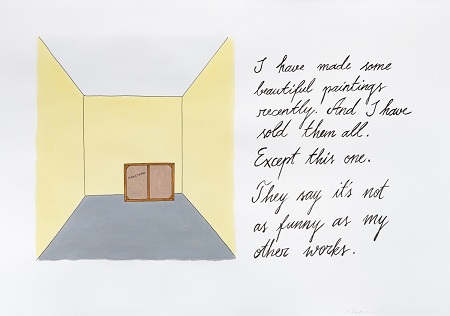 I have made some
beautiful paintings
recently. And I have
sold them all.
Except this one.
They say it's not
as funny as my
other works.